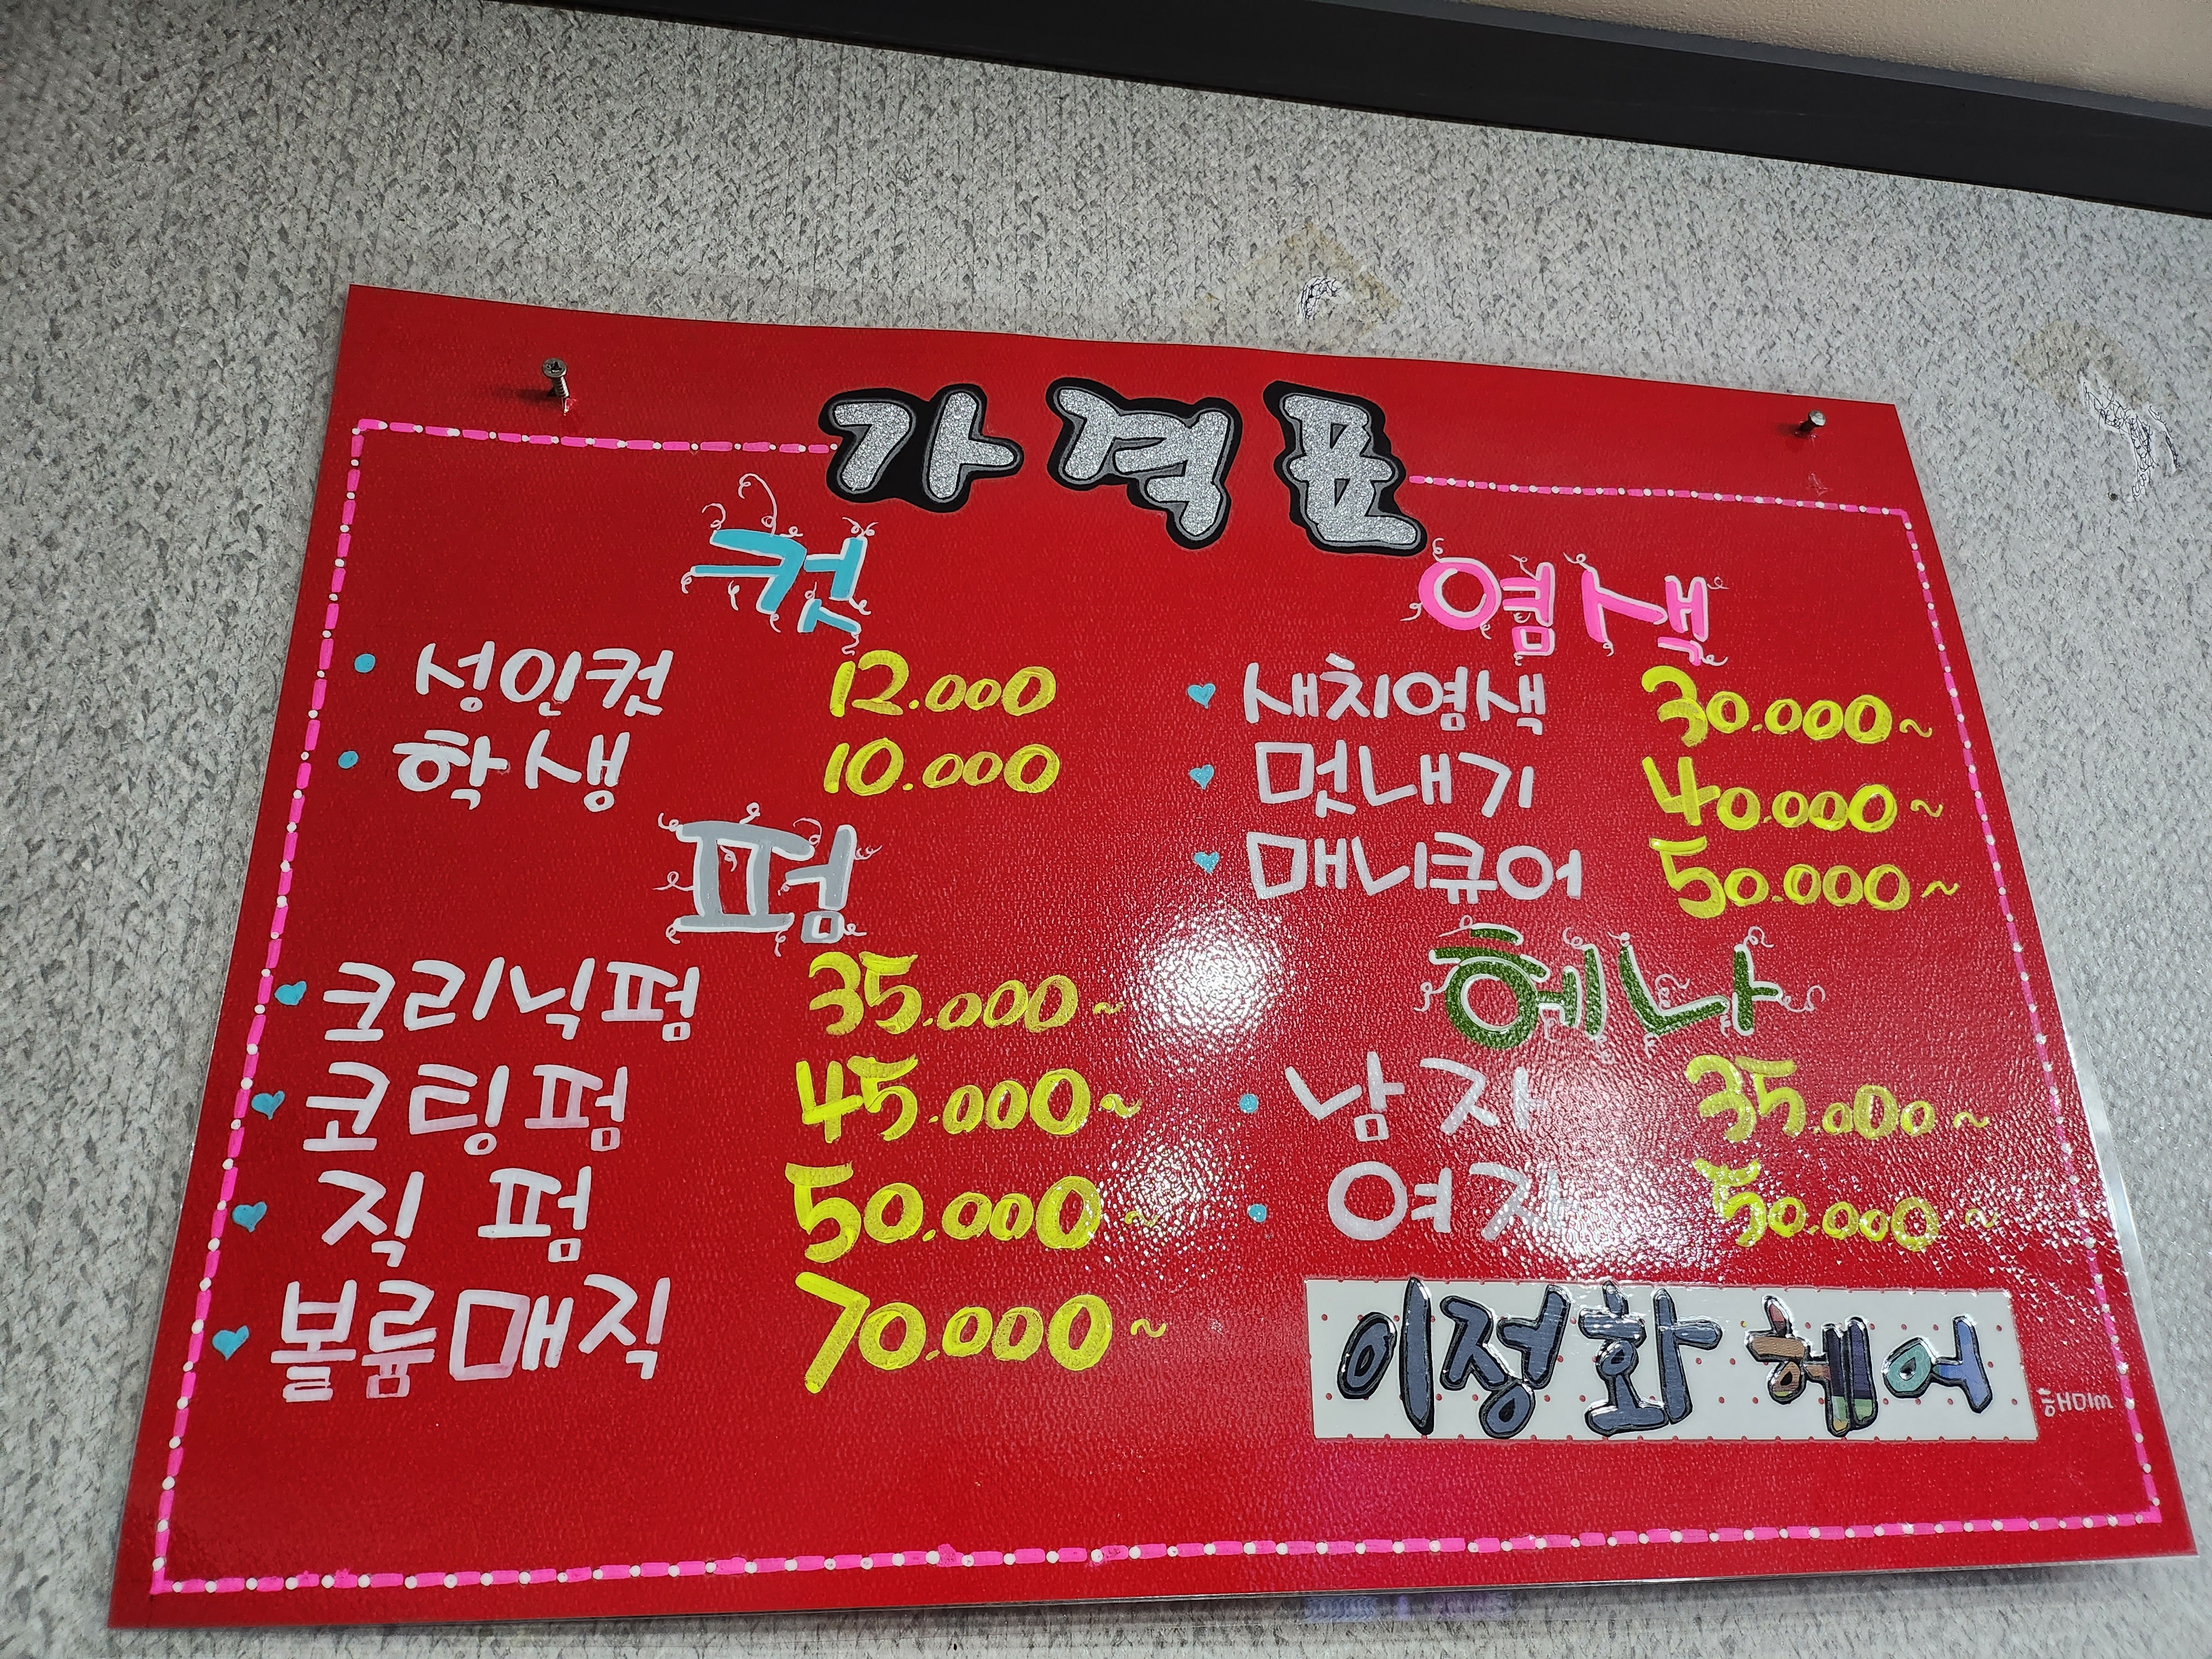 가격표
컷
성인컷 12.000
학생 10.000
펌
크리닉펌 35.000~
코팅펌 45.000~
직펌 50.000~
볼륨매직 70.000~
염색
새치염색 30.000~
멋내기 40.000~
매니큐어 50.000~
헤나
남자 35.000~
여자 50.000~
이정화 헤어